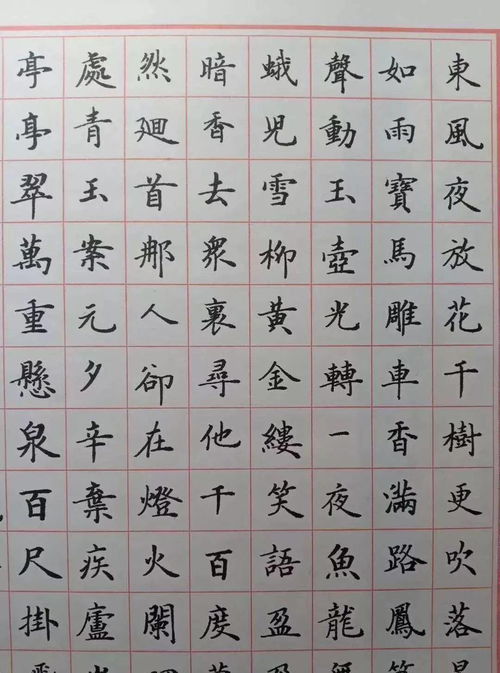 東風夜放花千樹更吹落
如雨寶馬雕車香滿路鳳
聲動玉壺光轉一夜魚龍
蛾兒雪柳黃金縷笑語盈
暗香去衆裏尋他千百度
然廻首那人卻在燈火闌
處青玉案元夕辛棄疾廬
亭亭翠萬重懸泉百尺掛